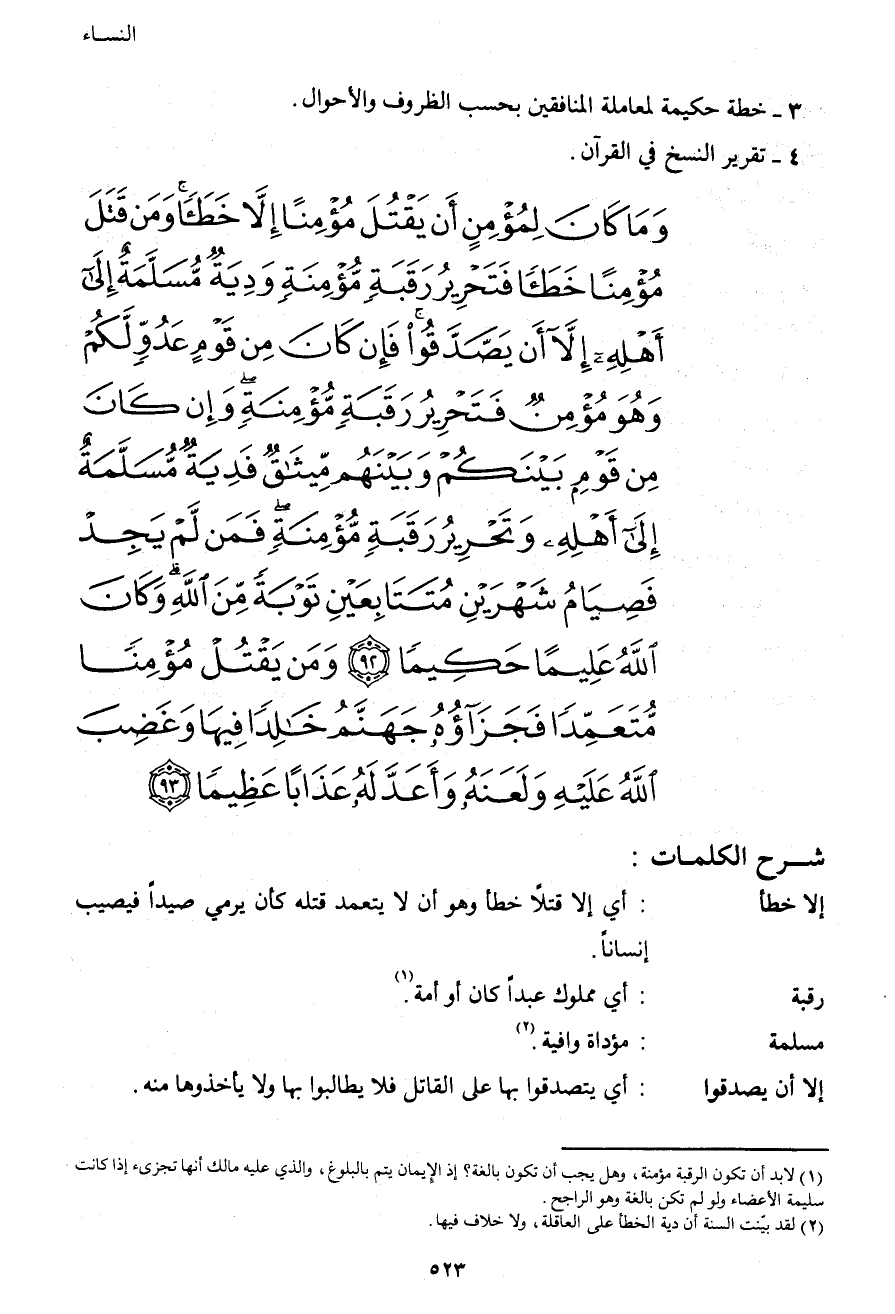 النساء
٣ ـ خطة حكيمة لمعاملة المنافقين بحسب الظروف والأحوال .
٤ ـ تقرير النسخ في القرآن .
وَمَا كَانَ لِمُؤْمِنٍ أَن يَقْتُلَ مُؤْمِنًا إِلَّا خَطَـًٔا ۚ وَمَن قَتَلَ
مُؤْمِنًا خَطَـًٔا فَتَحْرِيرُ رَقَبَةٍ مُّؤْمِنَةٍ وَدِيَةٌ مُّسَلَّمَةٌ إِلَىٰٓ
أَهْلِهِۦٓ إِلَّآ أَن يَصَّدَّقُوا۟ ۚ فَإِن كَانَ مِن قَوْمٍ عَدُوٍّ لَّكُمْ
وَهُوَ مُؤْمِنٌ فَتَحْرِيرُ رَقَبَةٍ مُّؤْمِنَةٍ ۖ وَإِن كَانَ
مِن قَوْمٍ بَيْنَكُمْ وَبَيْنَهُم مِّيثَٰقٌ فَدِيَةٌ مُّسَلَّمَةٌ
إِلَىٰٓ أَهْلِهِۦ وَتَحْرِيرُ رَقَبَةٍ مُّؤْمِنَةٍ ۖ فَمَن لَّمْ يَجِدْ
فَصِيَامُ شَهْرَيْنِ مُتَتَابِعَيْنِ تَوْبَةً مِّنَ ٱللَّهِ ۗ وَكَانَ
ٱللَّهُ عَلِيمًا حَكِيمًا ﴿٩٢﴾ وَمَن يَقْتُلْ مُؤْمِنًا
مُّتَعَمِّدًا فَجَزَآؤُهُۥ جَهَنَّمُ خَٰلِدًا فِيهَا وَغَضِبَ
ٱللَّهُ عَلَيْهِ وَلَعَنَهُۥ وَأَعَدَّ لَهُۥ عَذَابًا عَظِيمًا ﴿٩٣﴾
شرح الكلمات :
إلا خطأ : أي إلا قتلًا خطأ وهو أن لا يتعمد قتله كأن يرمي صيداً فيصيب
إنساناً .
رقبة : أي مملوك عبداً كان أو أمة .(١)
مسلمة : مؤداة وافية .(٢)
إلا أن يصدقوا : أي يتصدقوا بها على القاتل فلا يطالبوا بها ولا يأخذوها منه .
(١) لابد أن تكون الرقبة مؤمنة، وهل يجب أن تكون بالغة؟ إذ الإيمان يتم بالبلوغ، والذي عليه مالك أنها تجزىء إذا كانت
سليمة الأعضاء ولو لم تكن بالغة وهو الراجح .
(٢) لقد بيّنت السنة أن دية الخطأ على العاقلة، ولا خلاف فيها .
٥٢٣